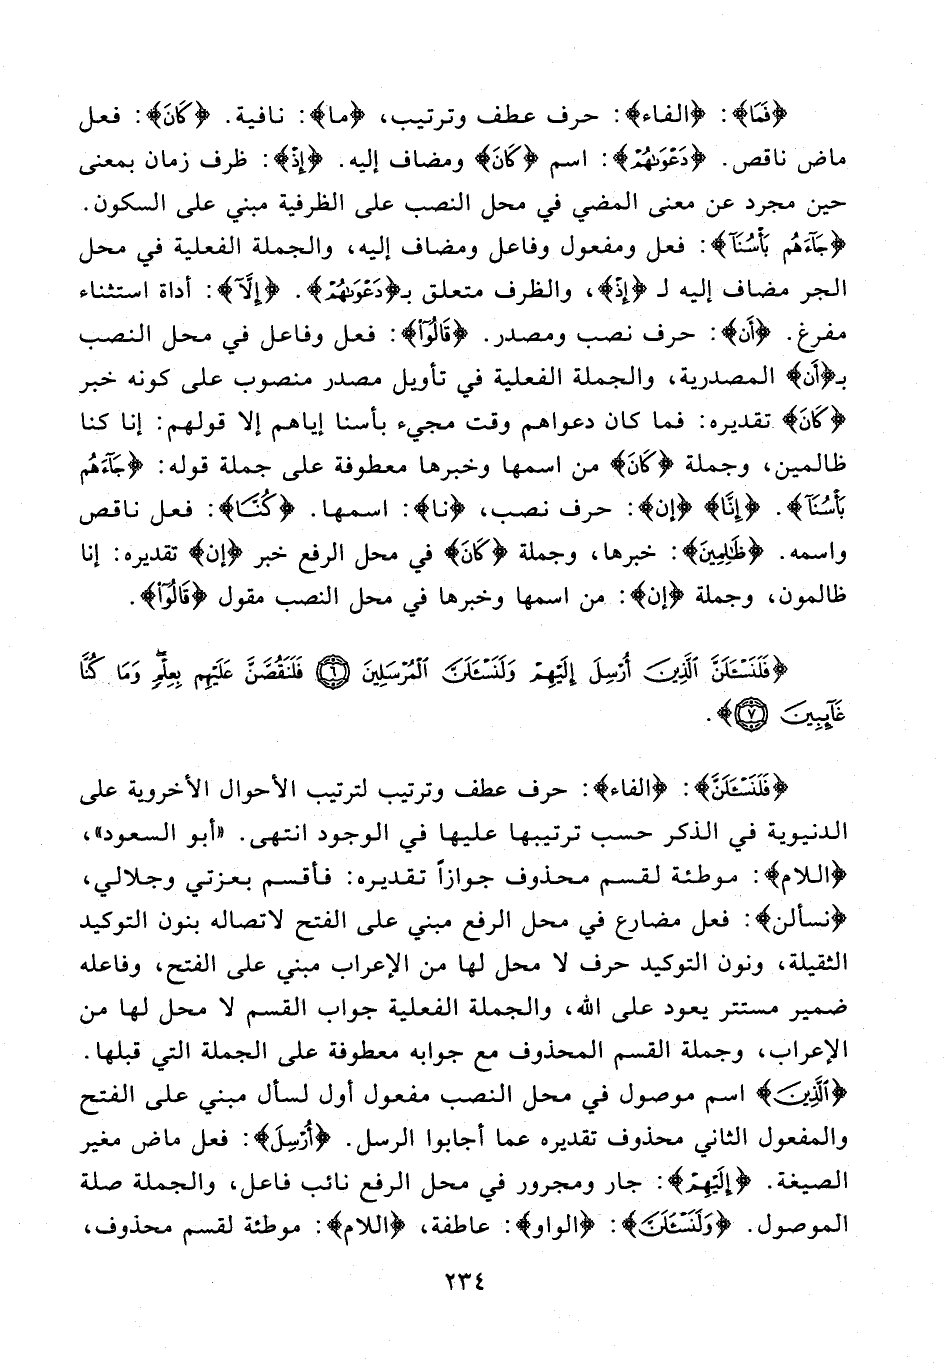 ﴿فَمَا﴾: ﴿الفاء﴾: حرف عطف وترتيب، ﴿ما﴾: نافية. ﴿كَانَ﴾: فعل
ماض ناقص. ﴿دَعْوَىٰهُمْ﴾: اسم ﴿كَانَ﴾ ومضاف إليه. ﴿إِذْ﴾: ظرف زمان بمعنى
حين مجرد عن معنى المضي في محل النصب على الظرفية مبني على السكون.
﴿جَآءَهُم بَأْسُنَآ﴾: فعل ومفعول وفاعل ومضاف إليه، والجملة الفعلية في محل
الجر مضاف إليه لـ ﴿إِذْ﴾، والظرف متعلق بـ﴿دَعْوَىٰهُمْ﴾. ﴿إِلَّآ﴾: أداة استثناء
مفرغ. ﴿أَن﴾: حرف نصب ومصدر. ﴿قَالُوٓا۟﴾: فعل وفاعل في محل النصب
بـ﴿أَن﴾ المصدرية، والجملة الفعلية في تأويل مصدر منصوب على كونه خبر
﴿كَانَ﴾ تقديره: فما كان دعواهم وقت مجيء بأسنا إياهم إلا قولهم: إنا كنا
ظالمين، وجملة ﴿كَانَ﴾ من اسمها وخبرها معطوفة على جملة قوله: ﴿جَآءَهُم
بَأْسُنَآ﴾. ﴿إِنَّا﴾ ﴿إن﴾: حرف نصب، ﴿نا﴾: اسمها. ﴿كُنَّا﴾: فعل ناقص
واسمه. ﴿ظَٰلِمِينَ﴾: خبرها، وجملة ﴿كَانَ﴾ في محل الرفع خبر ﴿إن﴾ تقديره: إنا
ظالمون، وجملة ﴿إن﴾: من اسمها وخبرها في محل النصب مقول ﴿قَالُوٓا۟﴾.
﴿فَلَنَسْـَٔلَنَّ ٱلَّذِينَ أُرْسِلَ إِلَيْهِمْ وَلَنَسْـَٔلَنَّ ٱلْمُرْسَلِينَ ٦ فَلَنَقُصَّنَّ عَلَيْهِم بِعِلْمٍۖ وَمَا كُنَّا
غَآئِبِينَ ٧﴾.
﴿فَلَنَسْـَٔلَنَّ﴾: ﴿الفاء﴾: حرف عطف وترتيب لترتيب الأحوال الأخروية على
الدنيوية في الذكر حسب ترتيبها عليها في الوجود انتهى. «أبو السعود»،
﴿اللام﴾: موطئة لقسم محذوف جوازاً تقديره: فأقسم بعزتي وجلالي،
﴿نسألن﴾: فعل مضارع في محل الرفع مبني على الفتح لاتصاله بنون التوكيد
الثقيلة، ونون التوكيد حرف لا محل لها من الإعراب مبني على الفتح، وفاعله
ضمير مستتر يعود على الله، والجملة الفعلية جواب القسم لا محل لها من
الإعراب، وجملة القسم المحذوف مع جوابه معطوفة على الجملة التي قبلها.
﴿ٱلَّذِينَ﴾ اسم موصول في محل النصب مفعول أول لسأل مبني على الفتح
والمفعول الثاني محذوف تقديره عما أجابوا الرسل. ﴿أُرْسِلَ﴾: فعل ماض مغير
الصيغة. ﴿إِلَيْهِمْ﴾: جار ومجرور في محل الرفع نائب فاعل، والجملة صلة
الموصول. ﴿وَلَنَسْـَٔلَنَّ﴾: ﴿الواو﴾: عاطفة، ﴿اللام﴾: موطئة لقسم محذوف،
٢٣٤